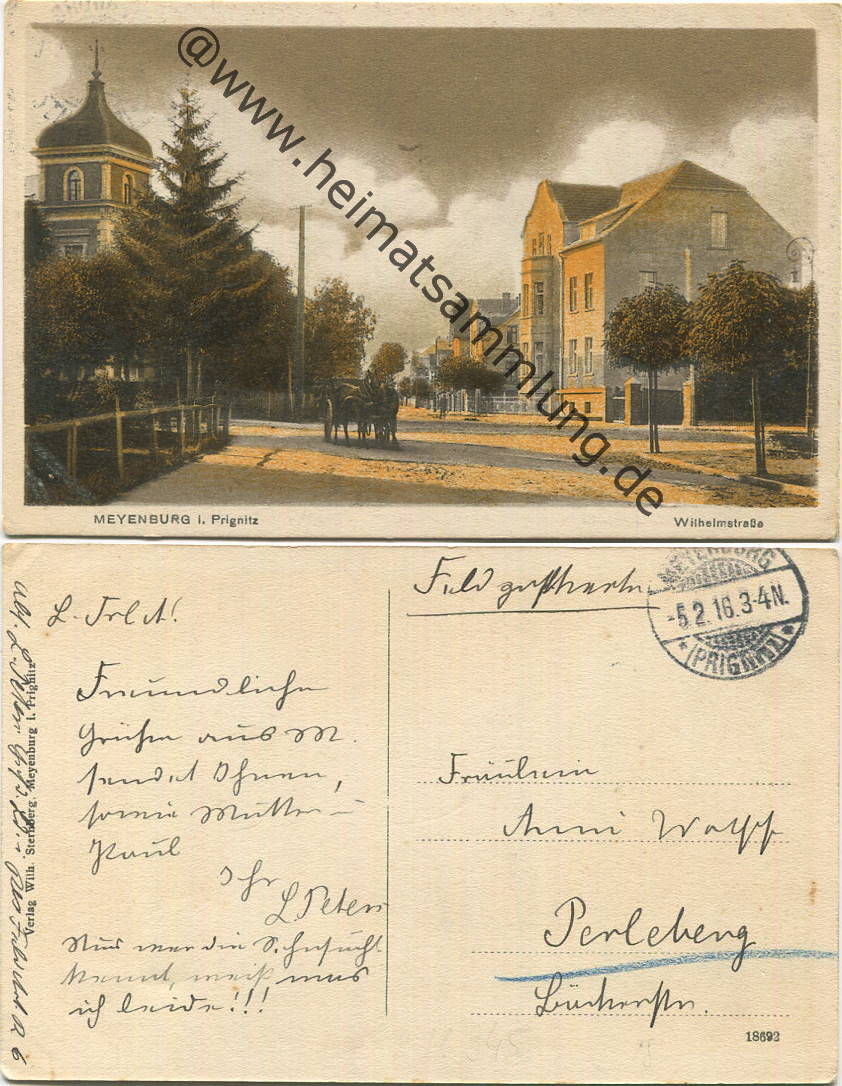 @www.heimatsammlung.de
MEYENBURG i. Prignitz
Wilhelmstraße
Feldpostkarte
MEYENBURG
-5.2.16.3-4N.
*(PRIGNITZ)*
L. Frl. A!
Freundliche
Grüße aus M.
sendet Ihnen,
sowie Mutter u
Paul
Ihr
L Peters
Nur wer die Sehnsucht
kennt, weiß, was
ich leide!!!
Fräulein
Anni Wolff
Perleberg
Bäckerstr.
18692
Verlag Wilh. Sternberg, Meyenburg i. Prignitz
Abs. L. Peters